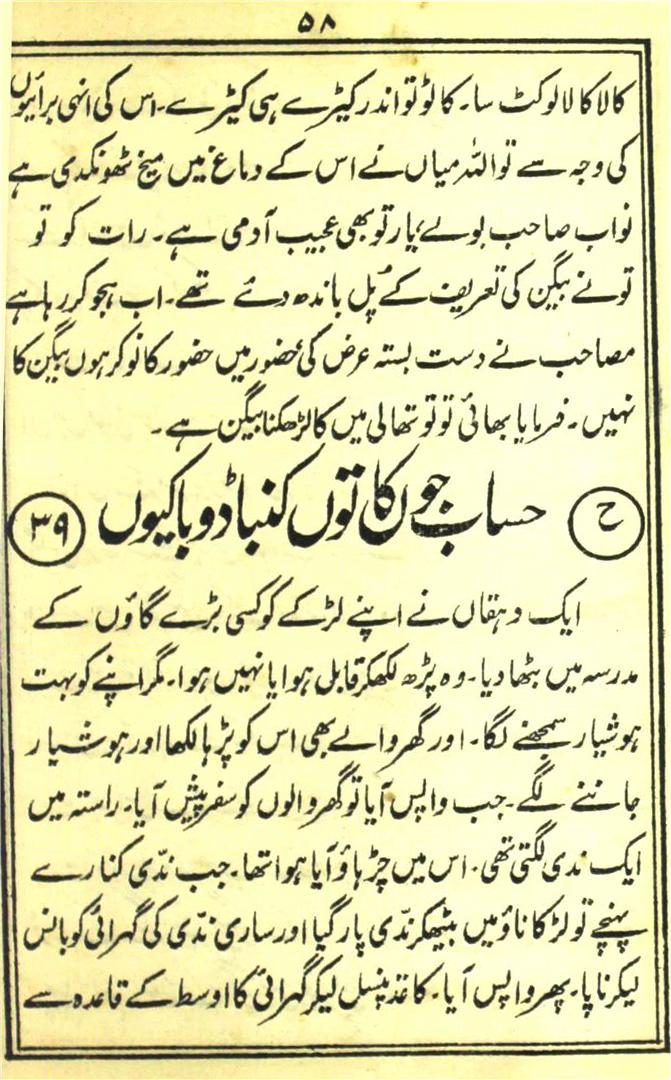 ۵۸
کالا کالا لوکٹ سا۔ کاٹو تو اندر کیڑے ہی کیڑے۔ اس کی انہی برائیوں
کی وجہ سے تو اللہ میاں نے اس کے دماغ میں میخ ٹھونکدی ہے
نواب صاحب بولے، یار تو بھی عجیب آدمی ہے۔ رات کو تو
تونے بیگن کی تعریف کے پل باندھ دئے تھے۔ اب ہجو کر رہا ہے
مصاحب نے دست بستہ عرض کی، حضور میں حضور کا نوکر ہوں بیگن کا
نہیں۔ فرمایا بھائی تو تو تھالی میں کا لڑھکنا بیگن ہے۔
ح حساب جوں کا توں کنبا ڈوبا کیوں ۳۹
ایک دہقاں نے اپنے لڑکے کو کسی بڑے گاؤں کے
مدرسہ میں بٹھا دیا۔ وہ پڑھ لکھکر قابل ہوا یا نہیں ہوا۔ مگر اپنے کو بہت
ہوشیار سمجھنے لگا۔ اور گھر والے بھی اس کو پڑہا لکھا اور ہوشیار
جاننے لگے۔ جب واپس آیا تو گھر والوں کو سفر پیش آیا۔ راستہ میں
ایک ندی لگتی تھی۔ اس میں چڑہاؤ آیا ہوا تھا۔ جب ندّی کنارے
پہنچے تو لڑکا ناؤ میں بیٹھکر ندّی پار گیا اور ساری ندّی کی گہرائی کو بانس
لیکر ناپا۔ پھر واپس آیا۔ کاغذ پنسل لیکر گہرائی کا اوسط کے قاعدہ سے